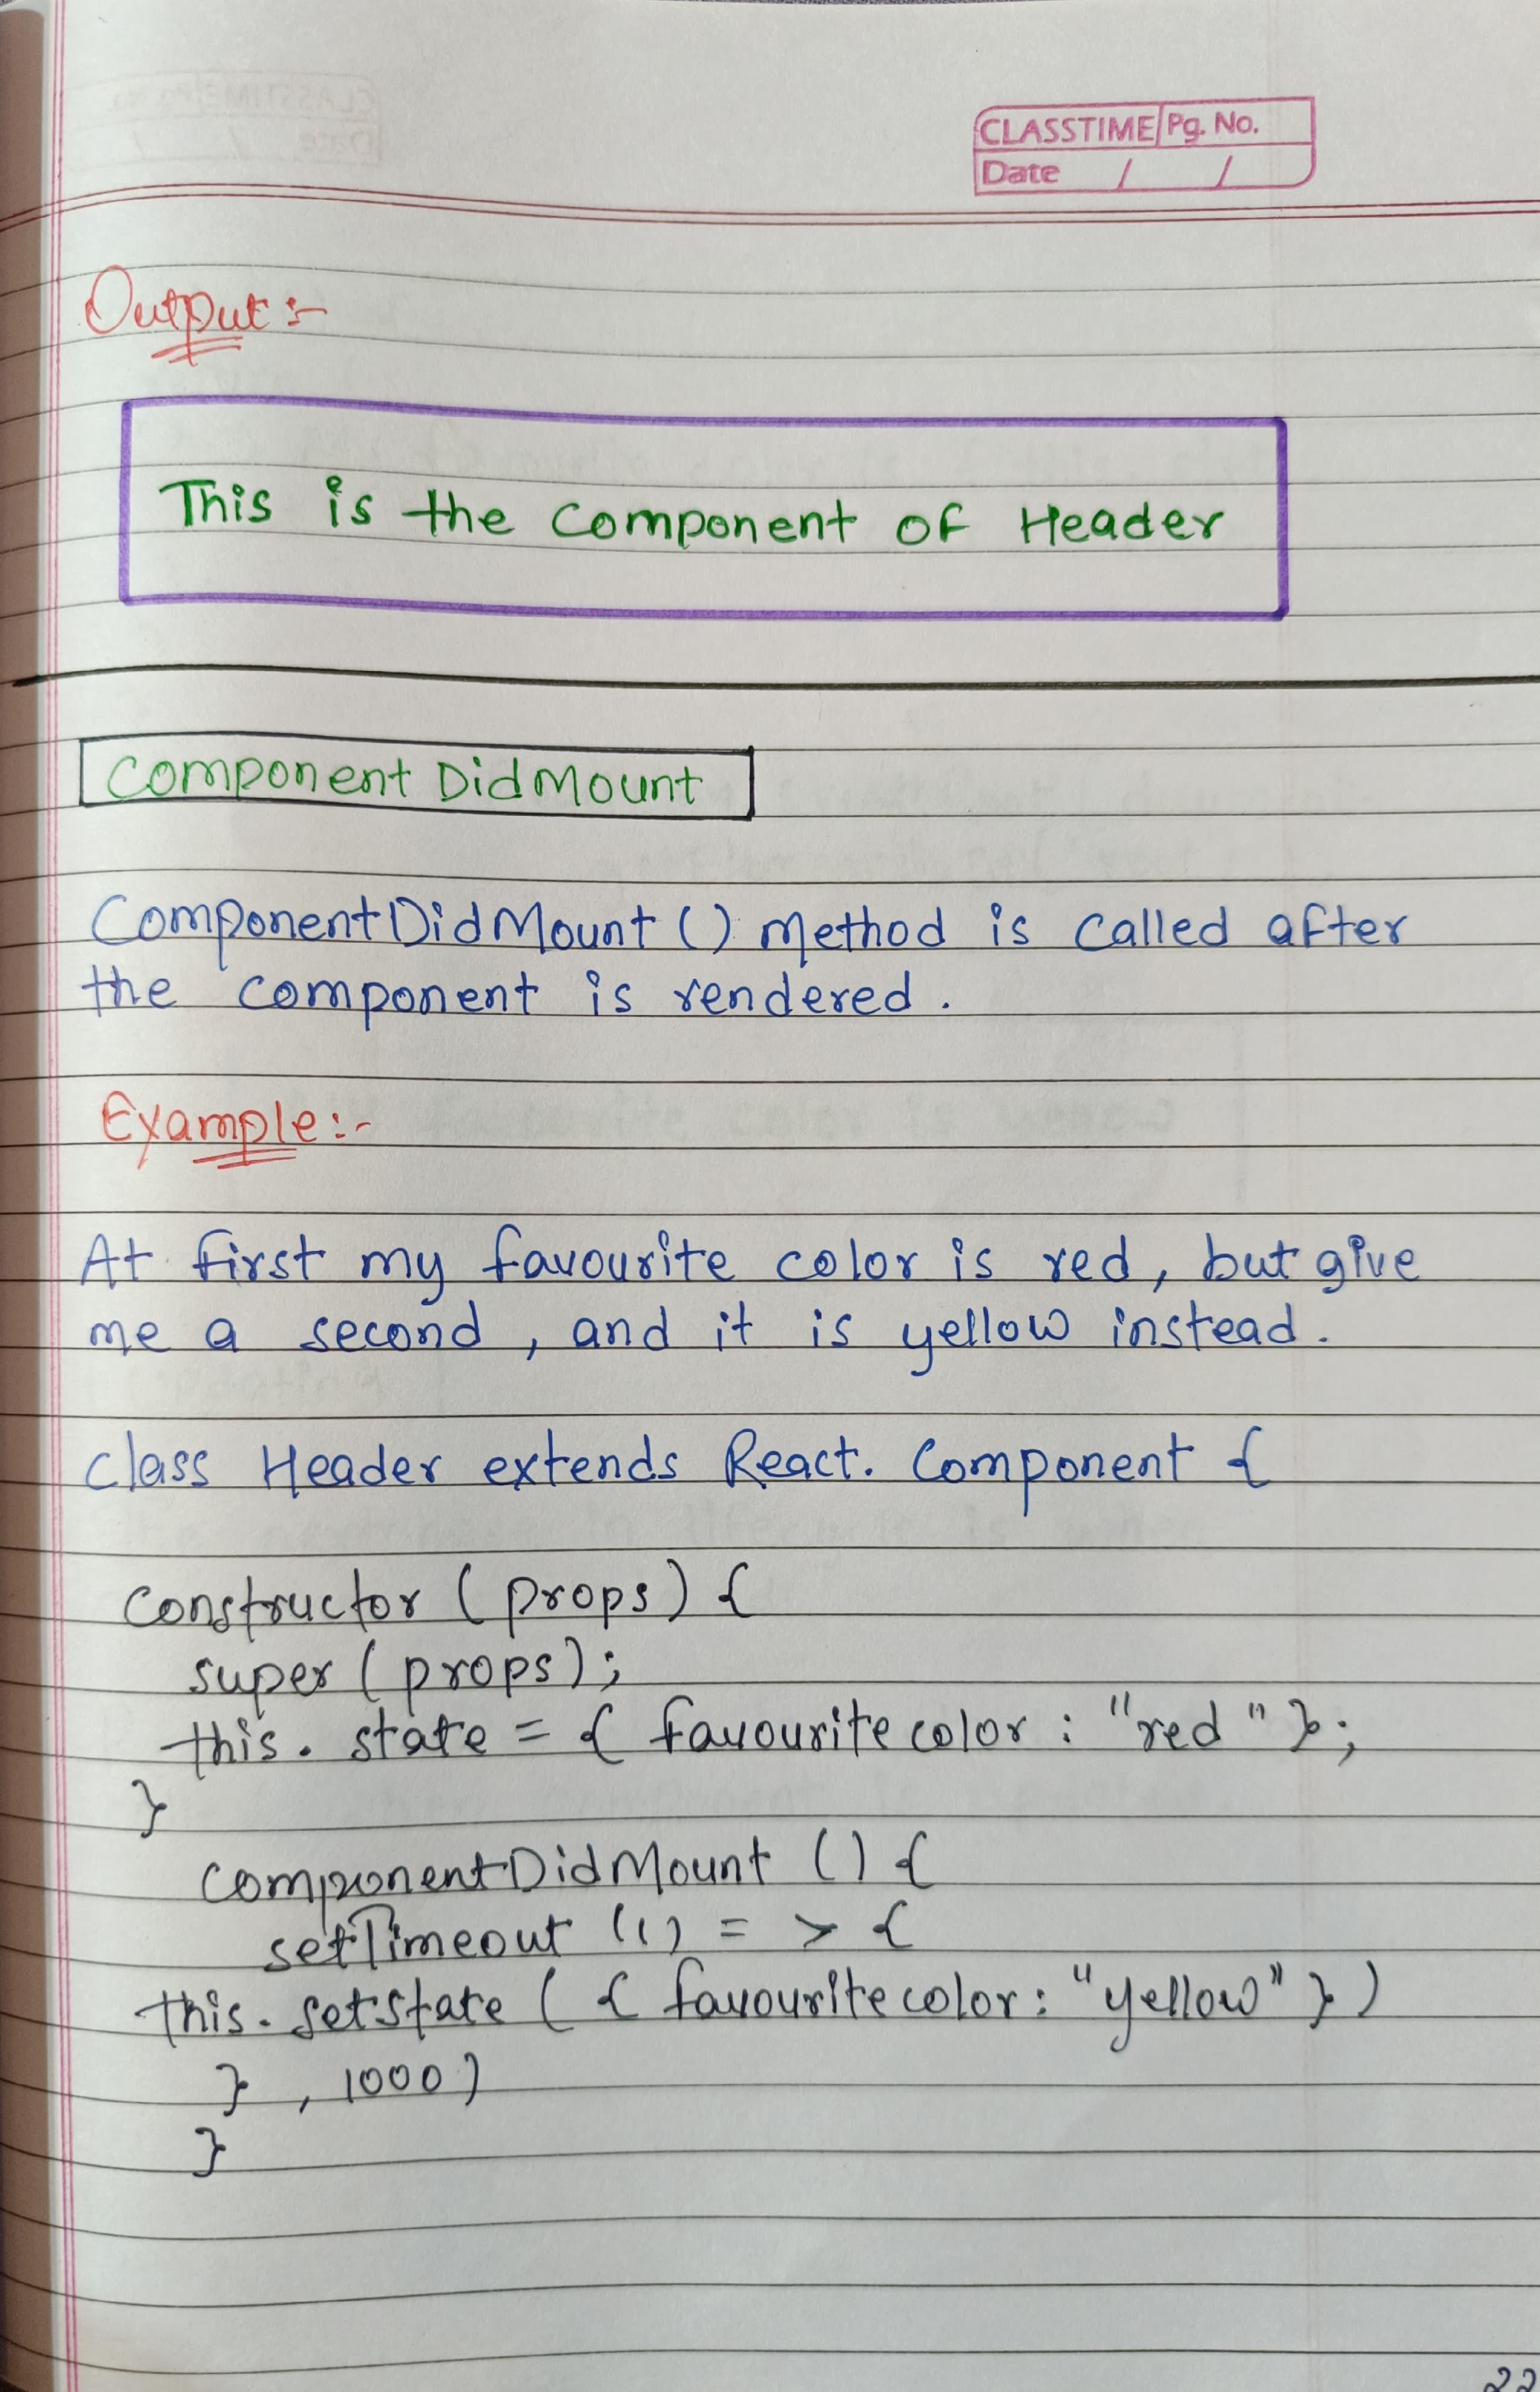 CLASSTIME Pg. No.
Date / /
Output :-
This is the Component of Header
Component DidMount
ComponentDidMount () Method is called after
the component is rendered.
Example:-
At first my favourite color is red, but give
me a second, and it is yellow instead.
class Header extends React. Component {
constructor (props) {
super (props);
this. state = { favourite color : "red" };
}
componentDidMount () {
setTimeout (() = > {
this. setState ( { favourite color: "yellow" } )
} , 1000)
}